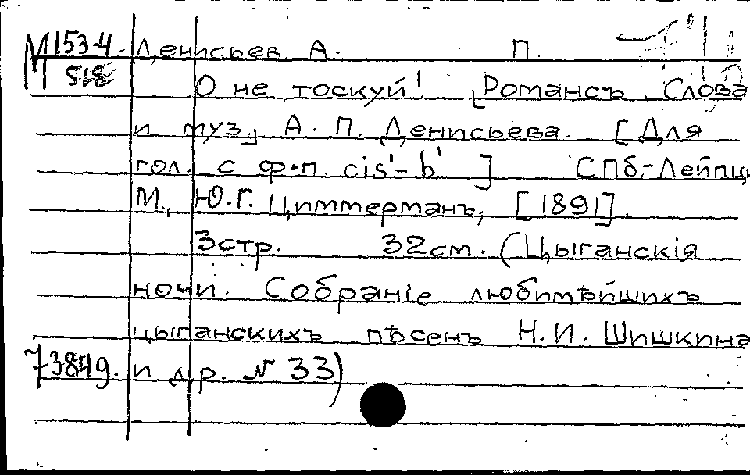 М 153-4. Денисьев А. П.
518 О не тоскуй! [Романсъ. Слова
и муз.] А. П. Денисьева. [Для
гол. с ф-п. cis'- b' ] СПб-Лейпц.
М., Ю.Г. Циммерманъ, [1891].
3стр. 32см. (Цыганскiя
ночи. Собранiе любимѣйшихъ
цыганскихъ пѣсенъ Н.И. Шишкина
73849. и др. № 33)